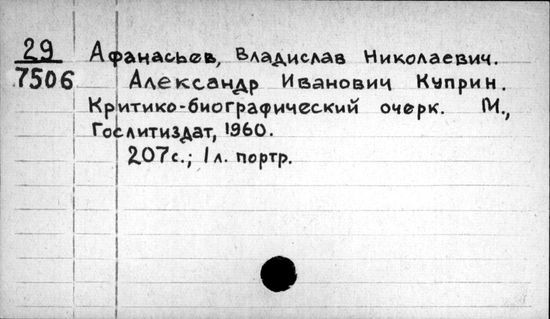 29 Афанасьев, Владислав Николаевич.
7506 Александр Иванович Куприн.
Критико-биографический очерк. М.,
Гослитиздат, 1960.
207с.; 1л. портр.